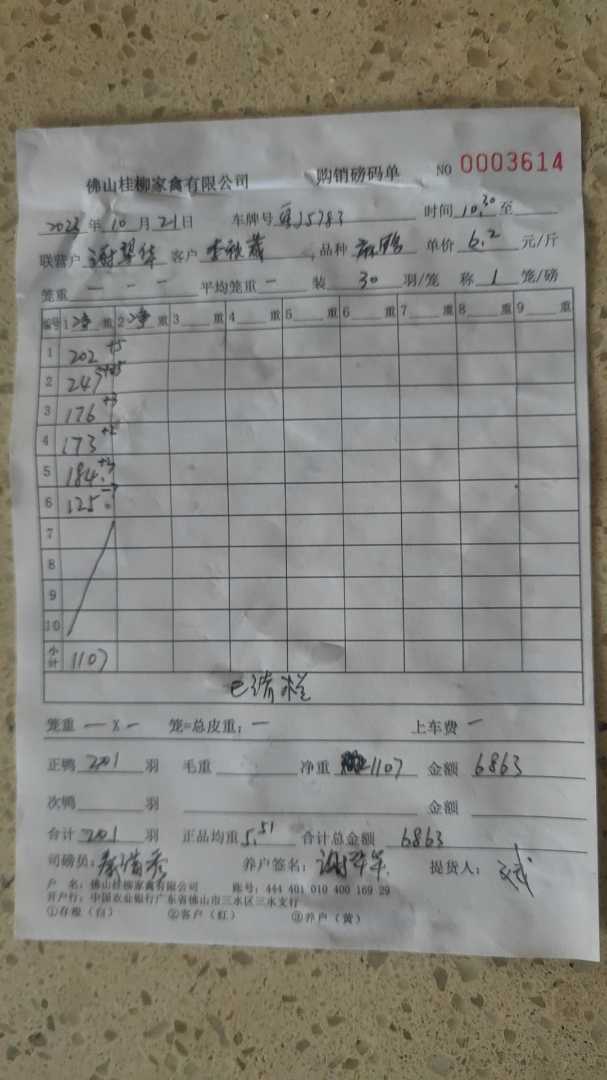 佛山桂柳家禽有限公司 购销磅码单 NO 0003614
2023年10月21日 车牌号 J5783 时间 10.30 至
联营户 谢翠华 客户 李 , 品种 麻鸭 单价 6.2 元/斤
笼重 — — — 平均笼重 — 装 30 羽/笼 称 1 笼/磅
编号 1 净 重 2 净 重 3 重 4 重 5 重 6 重 7 重 8 重 9 重
1 202 +5
2 247
3 176 +3
4 173
5 184
6 125
7
8
9
10
小计 1107
已清栏
笼重 — x — 笼=总皮重: — 上车费 —
正鸭 201 羽 毛重 净重 1107 金额 6863
次鸭 羽 金额
合计 201 羽 正品均重 5.51 合计总金额 6863
司磅员: 养户签名: 谢翠华 提货人:
户 名: 佛山桂柳家禽有限公司 账号: 444 401 010 400 169 29
开户行: 中国农业银行广东省佛山市三水区三水支行
①存根（白） ②客户（红） ③养户（黄）